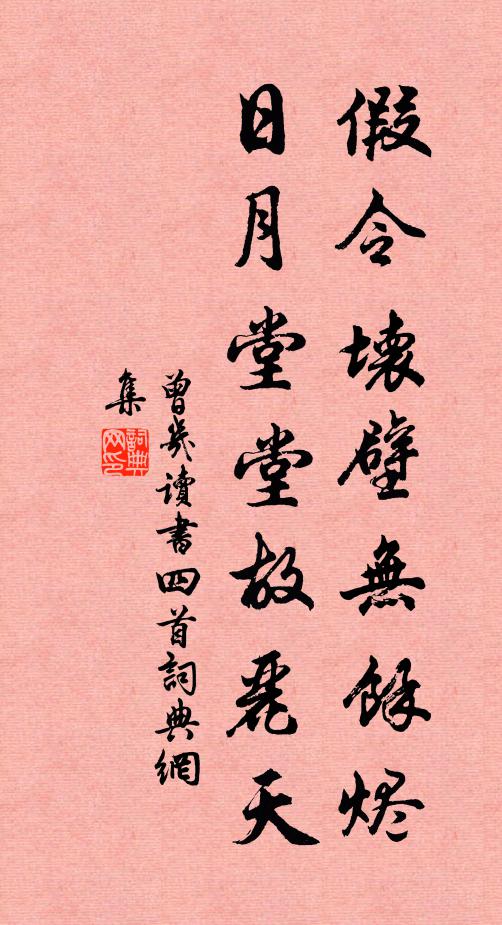 假令壞壁無餘烬
日月堂堂故麗天
曾幾讀書四首詞典網
集
詞典網印